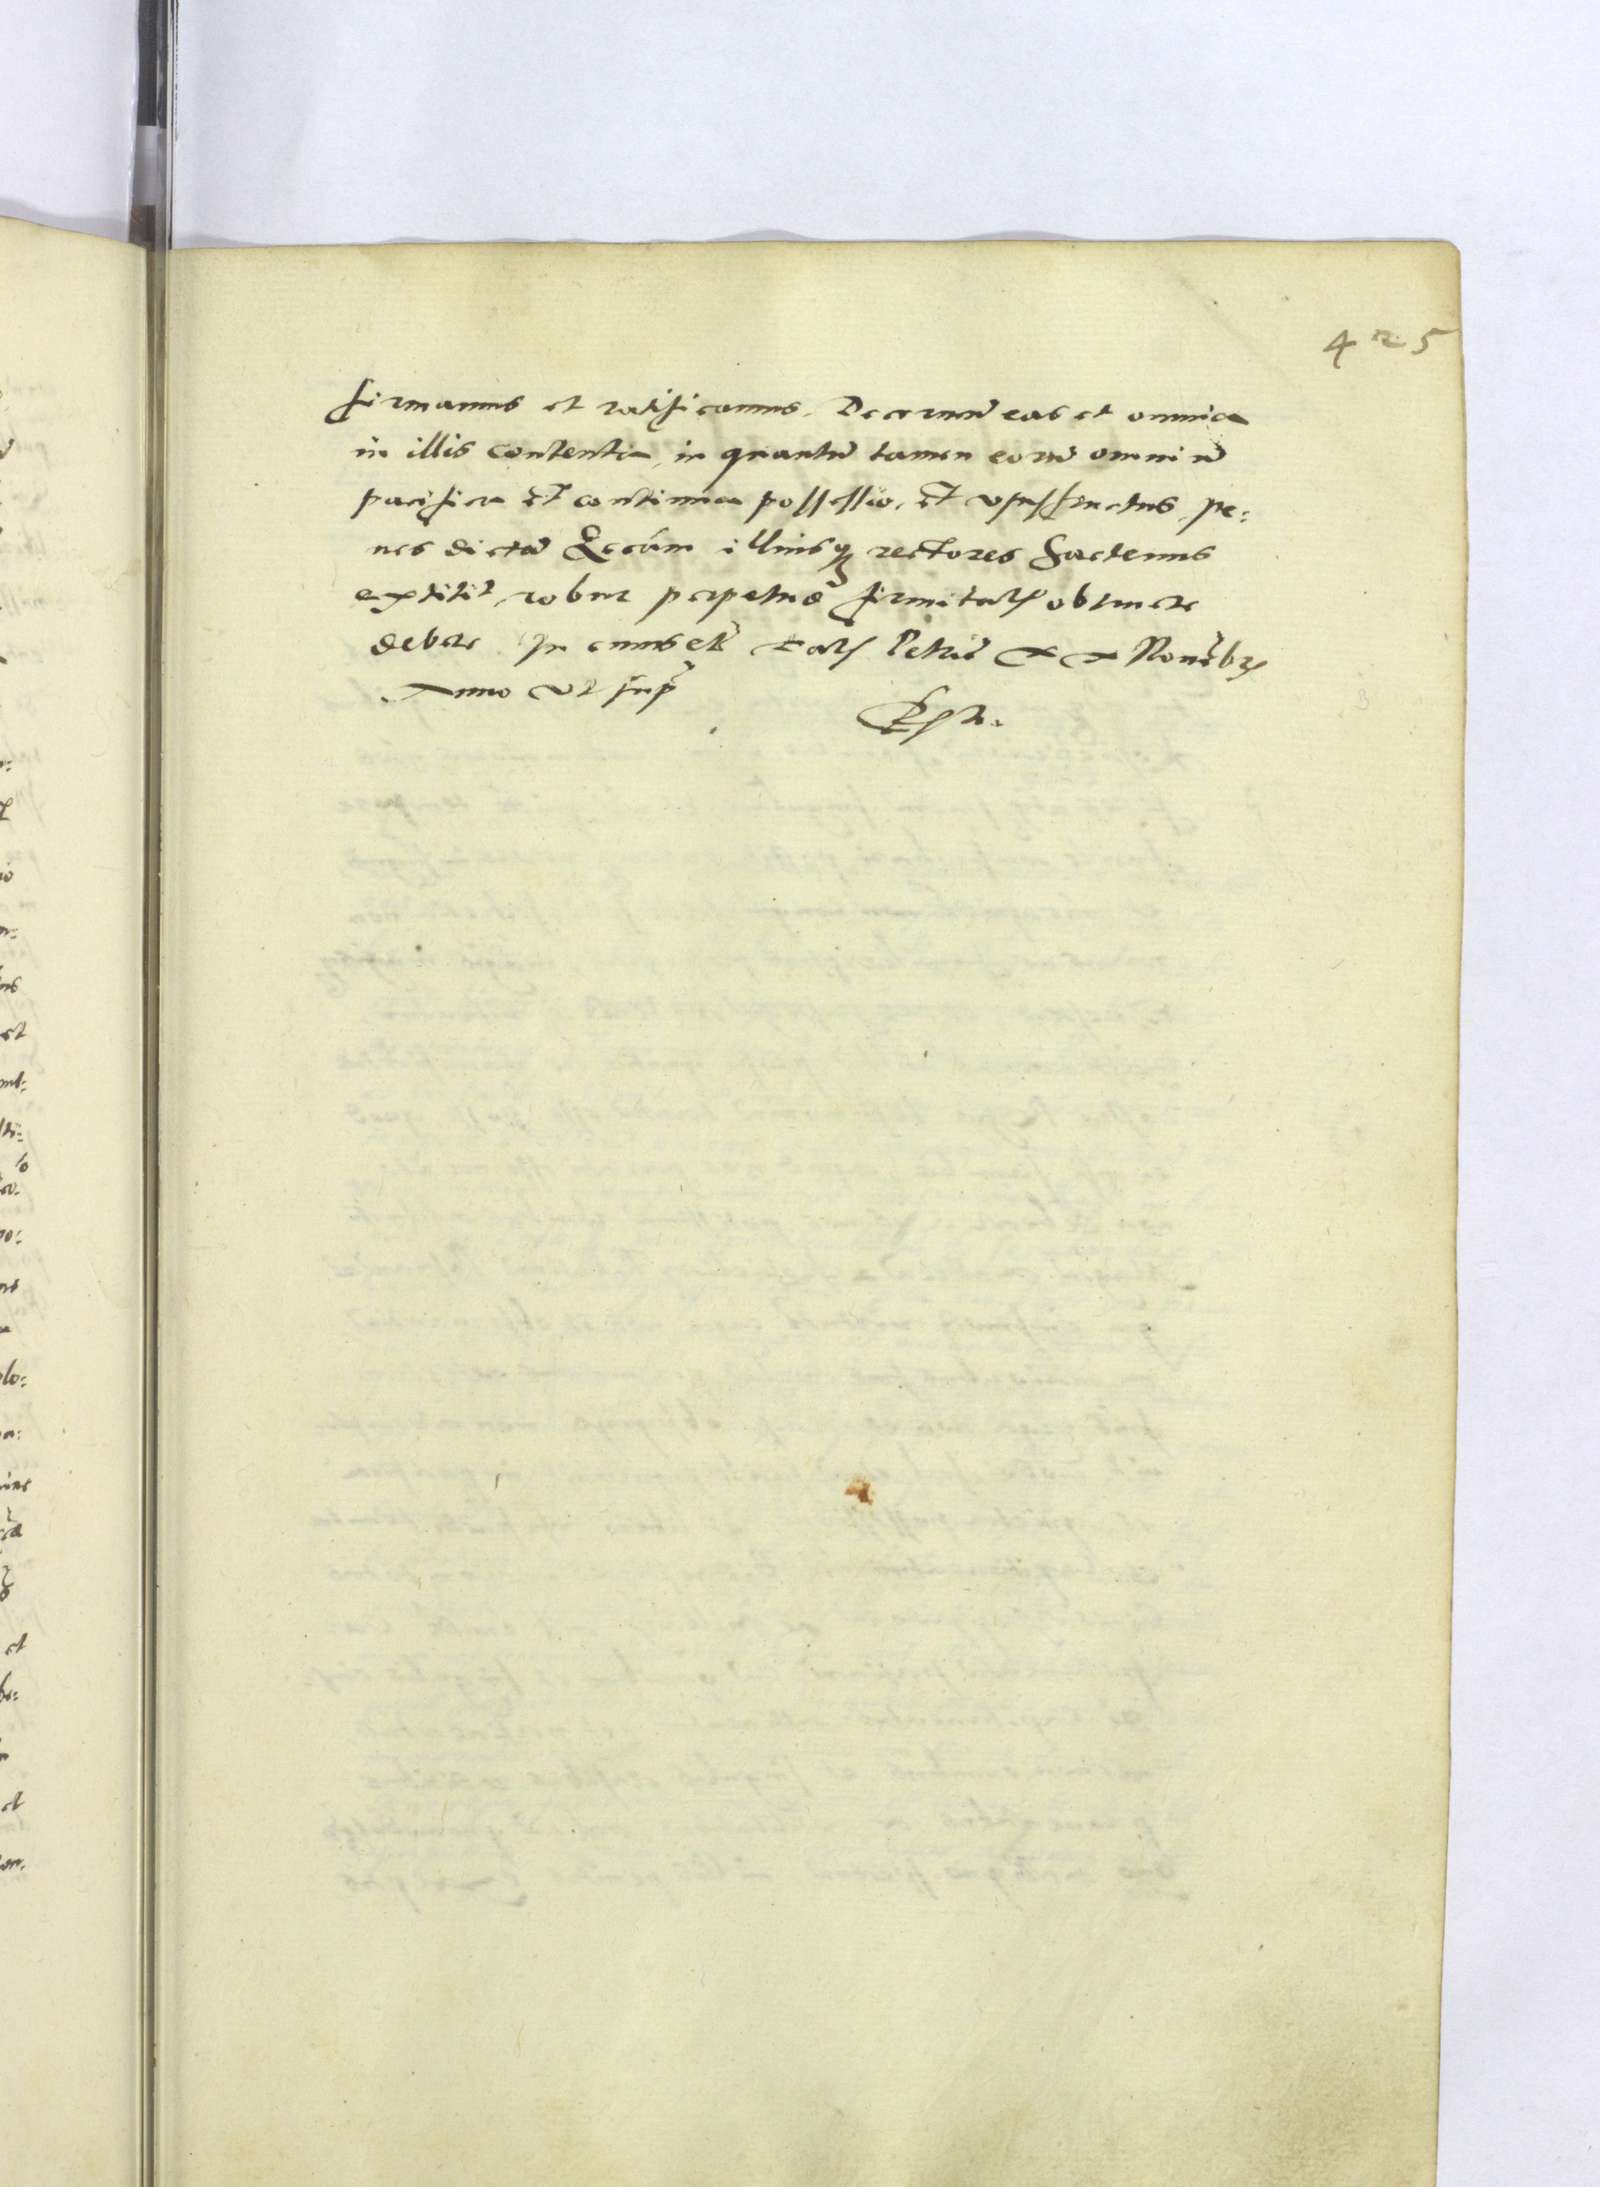 425
firmamus et ratificamus. Decernen̄ eas et omnia
in illis contenta, in quantū tamen eorū omniū
pacifica et continua possessio, et ususfructus pe:
nes dictā Eccām illiusq̢ rectores hactenus
extitit, robur perpetuē firmitatꝭ obtinere
debere. In cuius etc̄ Datꝭ Petric̄ XX Novēbrꝭ
Anno ut sup̄